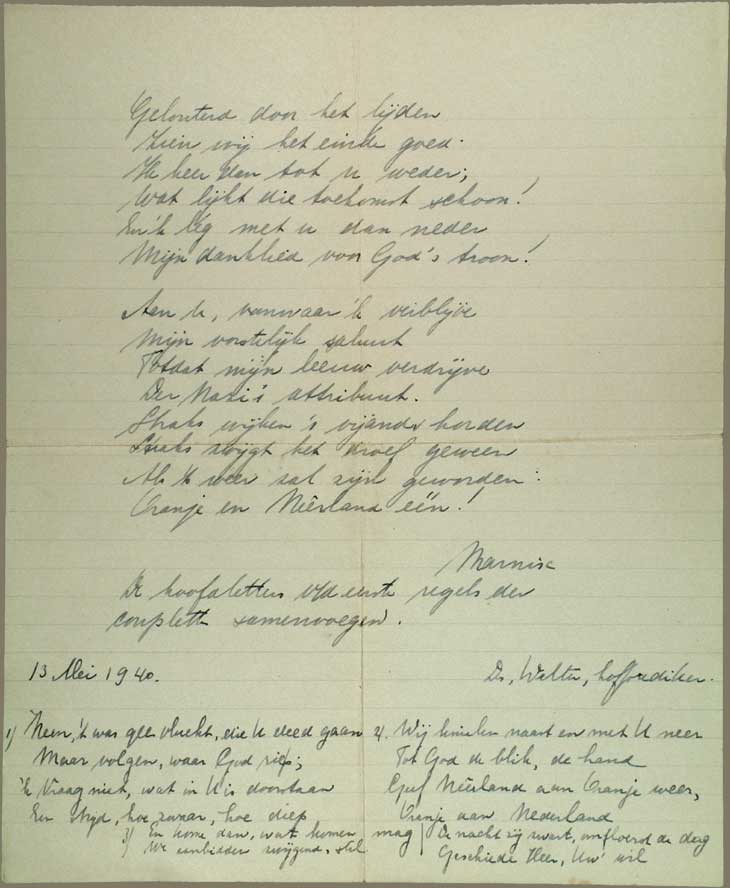 Gelouterd door het lijden
Zien wij het einde goed.
Ik keer dan tot u weder;
Wat lijkt die toekomst schoon!
En 'k leg met u dan neder
Mijn danklied voor God's troon!
Aan U, vanwaar 'k verblijve
Mijn vorstelijk saluut
Totdat mijn leeuw verdrijve
Der Nazi's attribuut.
Straks wijken 's vijands horden
Straks zwijgt het droef geween
Als 't weer zal zijn geworden:
Oranje en Neêrland één!
Marnix
De hoofdletters v/d eerste regels der
couplett samenvoegen.
13 Mei 1940.
Ds, Welter, hofprediker.
1) Neen, 't was geen vlucht, die U deed gaan
Maar volgen, waar God riep;
'k Vraag niet, wat in U is doorstaan
Een strijd, hoe zwaar, hoe diep
2. Wij knielen naast en met U neer
Tot God de blik, de hand
Geef Neêrland aan Oranje weer,
Oranje aan Nederland
3) En kome dan, wat komen mag
We aanbidden zwijgend, stil
De nacht zij zwart, omfloersd de dag
Geschiede Heer, Uw wil